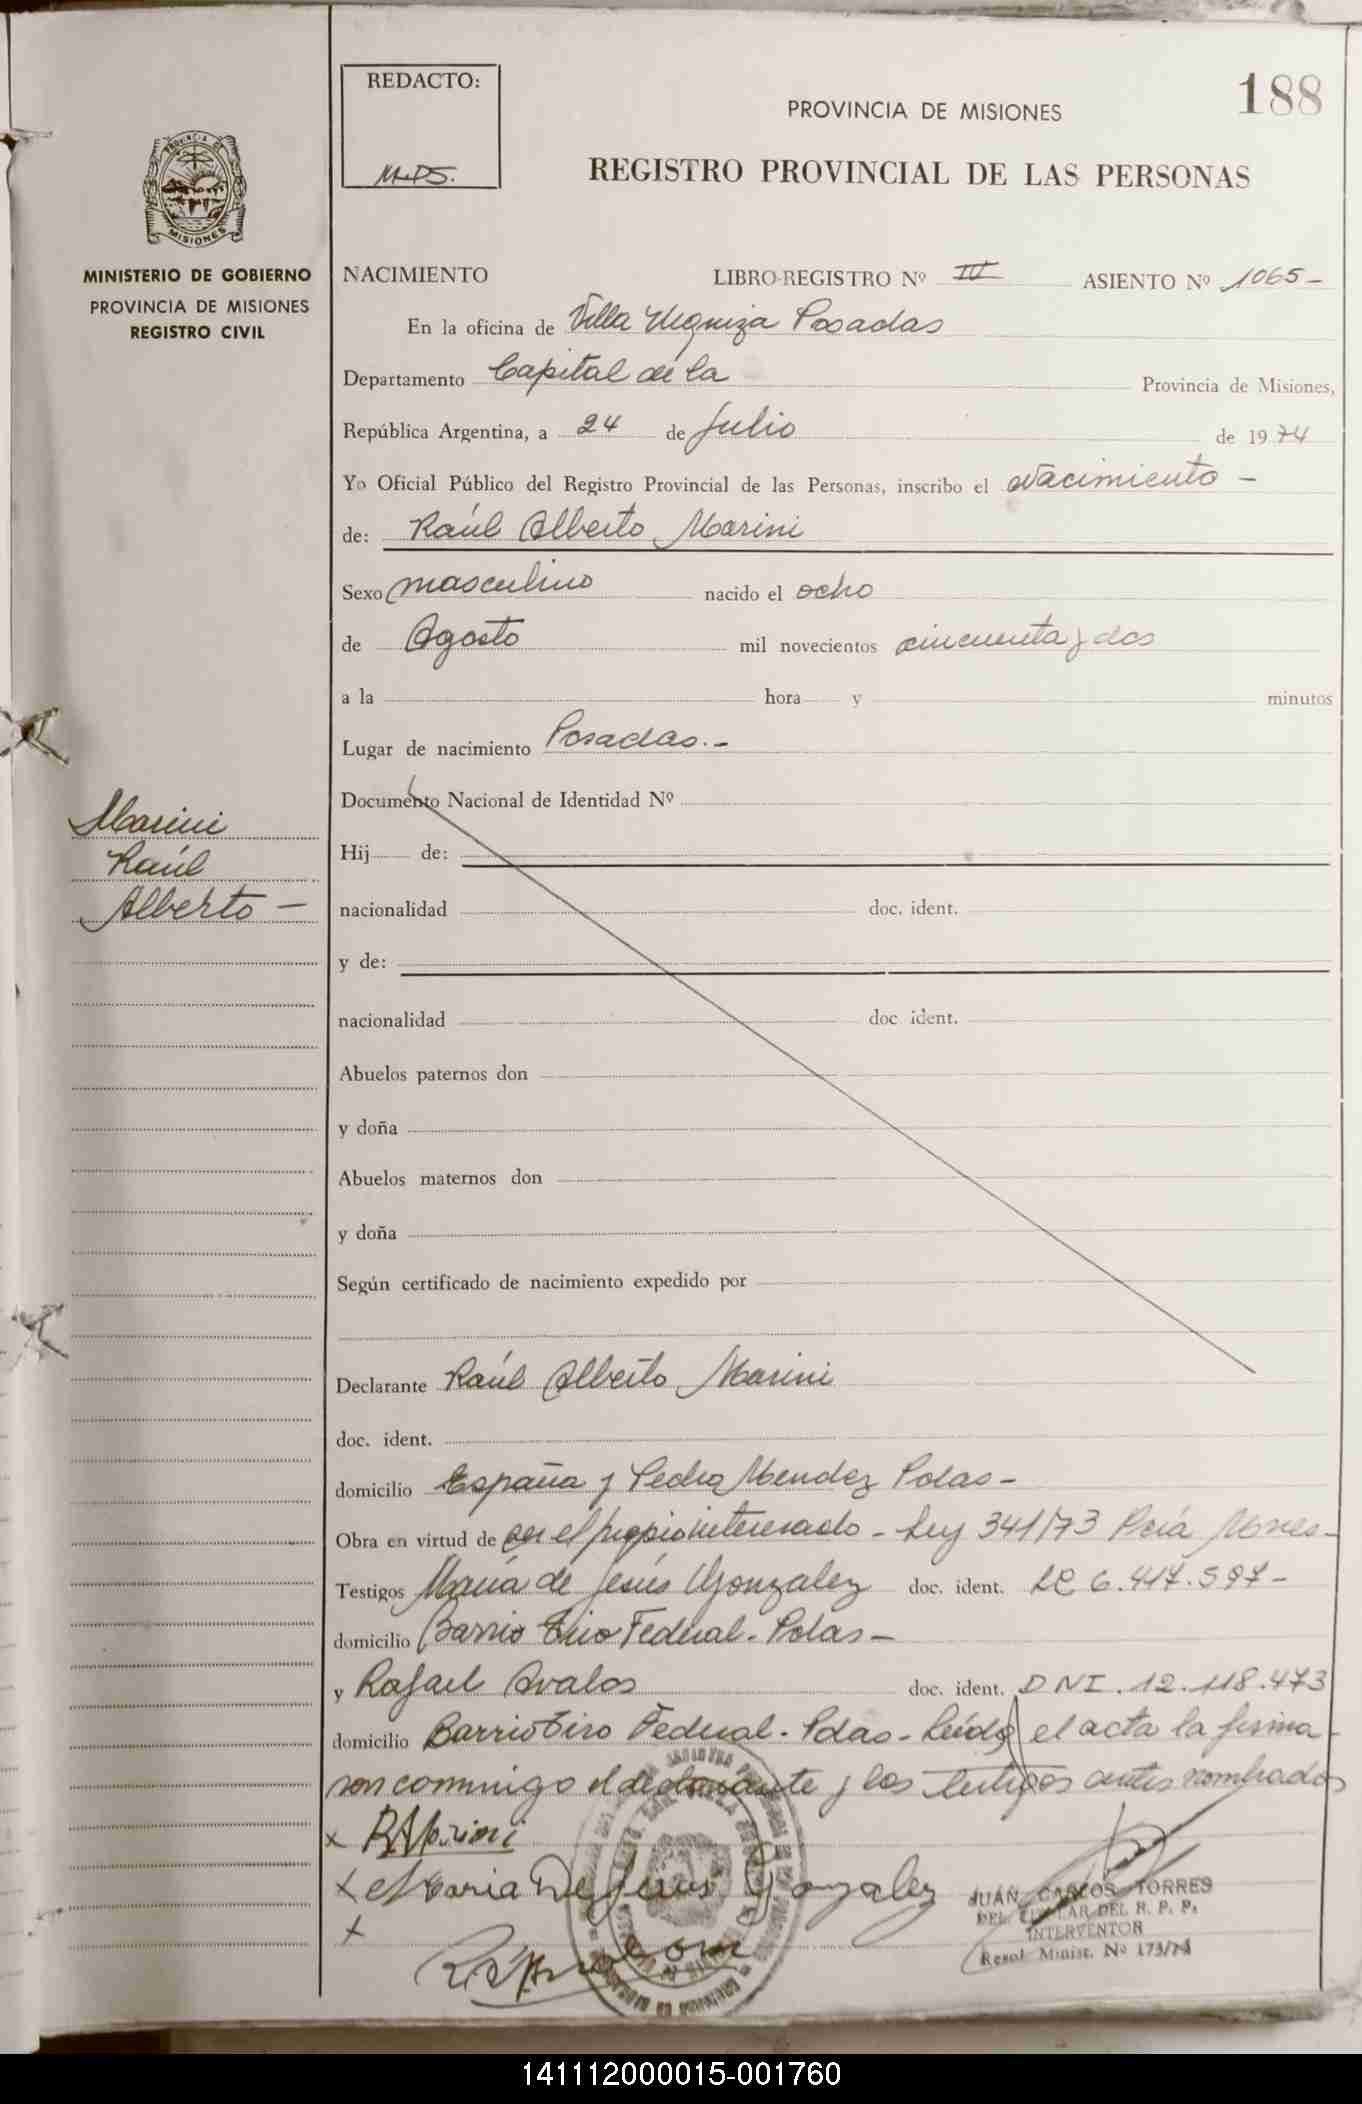 188
REDACTO:
PROVINCIA DE MISIONES
REGISTRO PROVINCIAL DE LAS PERSONAS
PROVINCIA DE
MISIONES
MINISTERIO DE GOBIERNO
PROVINCIA DE MISIONES
REGISTRO CIVIL
NACIMIENTO LIBRO-REGISTRO Nº IV ASIENTO Nº 1065-
En la oficina de Villa Urquiza Posadas
Departamento Capital de la Provincia de Misiones,
República Argentina, a 24 de Julio de 1974
Yo Oficial Público del Registro Provincial de las Personas, inscribo el Nacimiento -
de: Raúl Alberto Marini
Sexo masculino nacido el ocho
de Agosto mil novecientos cincuenta y dos
a la hora y minutos
Lugar de nacimiento Posadas.-
Documento Nacional de Identidad Nº
Marini
Raúl
Alberto -
Hij de:
nacionalidad doc. ident.
y de:
nacionalidad doc. ident.
Abuelos paternos don
y doña
Abuelos maternos don
y doña
Según certificado de nacimiento expedido por
Declarante Raúl Alberto Marini
doc. ident.
domicilio España y Pedro Mendez Pdas-
Obra en virtud de ser el propio interesado - Ley 341/73 Pcia Mnes-
Testigos María de Jesús Gonzalez doc. ident. LC 6.417.597-
domicilio Barrio Tiro Federal. Pdas-
y Rafael Avalos doc. ident. DNI.12.118.473
domicilio Barrio Tiro Federal. Pdas- Leída el acta la firma-
ron conmigo el declarante y los testigos antes nombrados
x RAMarini
x Maria De Jesus Gonzalez
x
JUAN CARLOS TORRES
DEL TITULAR DEL R. P. P.
INTERVENTOR
Resol. Minist. Nº 173/74
141112000015-001760